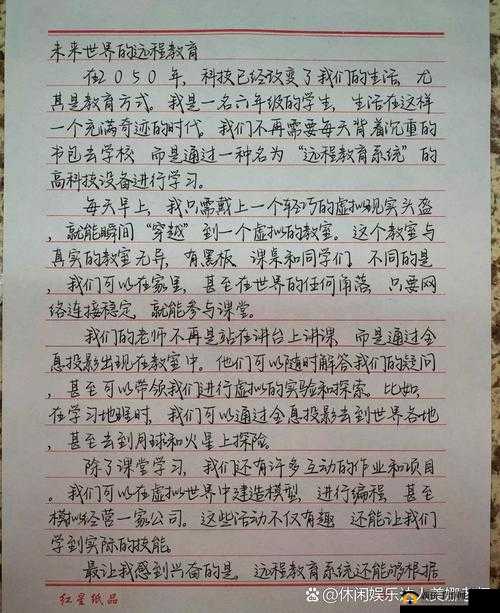 未来世界的远程教育
在2050年，科技已经改变了我们的生活，尤
其是教育方式。我是一名六年级的学生，生活在这样
一个充满奇迹的时代。我们不再需要每天背着沉重的
书包去学校，而是通过一种名为“远程教育系统”的
高科技设备进行学习。
每天早上，我只需戴上一个轻巧的虚拟现实头盔
，就能瞬间“穿越”到一个虚拟的教室。这个教室与
真实的教室无异，有黑板、课桌和同学们。不同的是
，我们可以在家里，甚至在世界的任何角落，只要网
络连接稳定，就能参与课堂。
我们的老师不再是站在讲台上讲课，而是通过全
息投影出现在教室中。他们可以随时解答我们的疑问
，甚至可以带领我们进行虚拟的实验和探索。比如，
在学习地理时，我们可以通过全息投影去到世界各地
，甚至去到月球和火星上探险。
除了课堂学习，我们还有许多互动的作业和项目
。我们可以在虚拟世界中建造模型，进行编程，甚至
模拟经营一家公司。这些活动不仅有趣，还能让我们
学到实际的技能。
最让我感到兴奋的是，远程教育系统还能够根据
红星纸品
@休闲娱乐达人